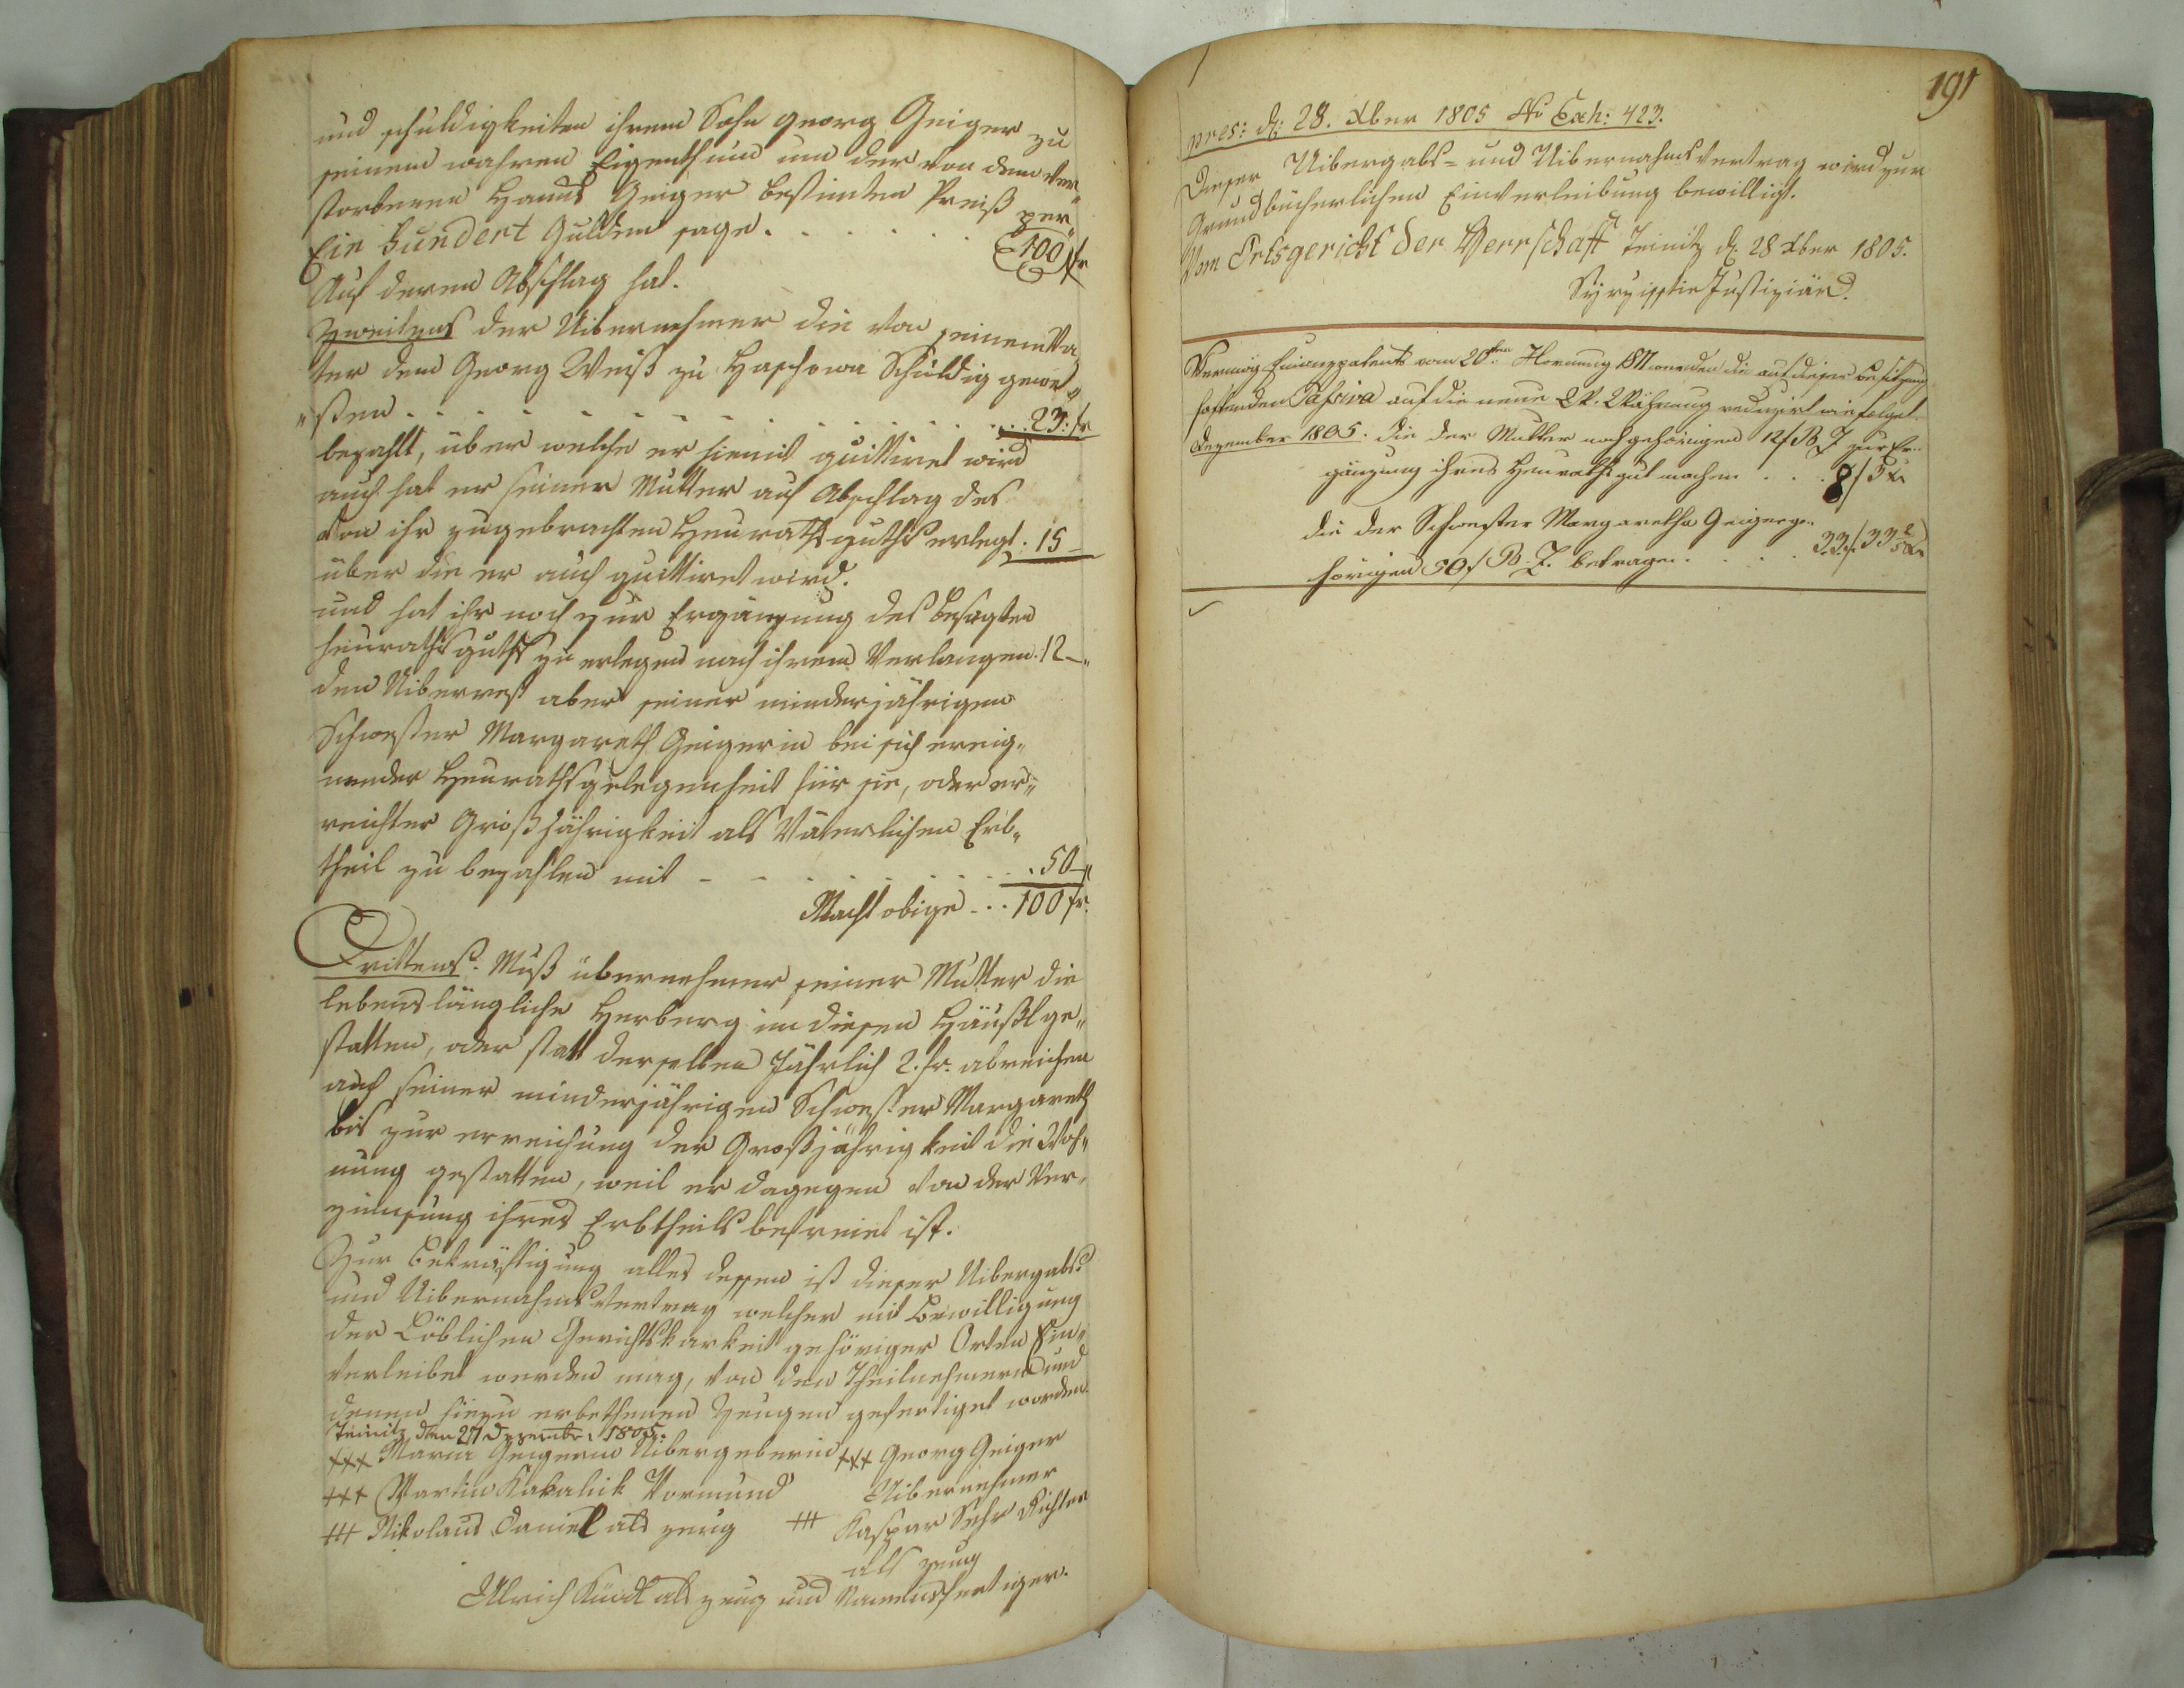 und schuldigkeiten ihrem Sohn Georg Geiger zu
seinem wahren Eigenthum um der von dem ver„
storbenen Hanns Geiger bestimten Preiß per„
Ein hundert Gulden sage . . . . . . 100 fr
Auf deren Abschlag hat.
Zweitens der Uibernehmer die von seinem Va„
ter dem Georg Weiß zu Haschowa Schuldig gewe„
„ßen . . . . . . . . . . . . 23: fr
bezahlt, über welche er hiemit quittiret wird
auch hat er seiner Mutter auf Abschlag des
von ihr zugebrachten Heurathsguths erlegt . 15 —
über die er auch quittiret wird.
und hat ihr noch zur Ergänzung des besagten
heurathsguths zu erlegen nach ihrem Verlangen . 12 —„
den Uiberrest aber seiner minderjährigen
Schwester Margareth Geigerin bei sich ereig„
nender Heurathsgelegenheit für sie, oder er„
reichter Großjährigkeit als Väterlichen Erb„
theil zu bezahlen mit - - . . . . . . . 50 —„
Macht obige - . . 100 fr.
Drittens. Muß übernehmer seiner Mutter die
lebenslängliche Herberg in diesen Häußl ge„
statten, oder statt derselben Jährlich 2. fr. abreichen
auch seiner minderjährigen Schwester Margareth
bis zur erreichung der Großjährigkeit die Woh„
nung gestatten, weil er dagegen von der Ver„
zinsung ihres Erbtheils befreiet ist.
Zur Bekräftigung alles dessen ist dieser Uibergabs-
und Uibernahmsvertrag welcher mit Bewilligung
der Löblichen Gerichtsbarkeit gehöriger Orten Ein„
verleibet werden mag, von den Theilnehmern und
denen hiezu erbethenen Zeugen gefertiget worden.
Teinitz den 27 Dezember 1805.
+++ Maria Geigerin Uibergeberin +++ Georg Geiger
Uibernehmer
+++ Martin Kakalik Vormund
+++ Nikolaus Daniel als zeug +++ Kaspar Sehr Richter
als zeug
Ulrich als zeug und Namensfertiger.
191
pres: d: 28. Xber 1805 No Exh: 423.
Dieser Uibergabs- und Uibernahmsvertrag wird zur
Grundbücherlichen Einverleibung bewilligt.
Vom Ortsgericht der Herrschaft Teinitz d. 28 Xber 1805.
Justiziär.
Vermög Finanzpatents vom 20ten Hornung 811 werden die auf dieser Besitzung
haftenden Passiva auf die neue W. Währung reduzirt wie folget.
Dezember 1805. die der Mutter noch gehörigen 12 f B. Z. zur Er„
gänzung ihres Heurathsgut machen . . . 8 f 3 x
die der Schwester Margaretha Geiger ge„
hörigen 50 f B. Z. betragen . . . . 33 f 33 2/5 x